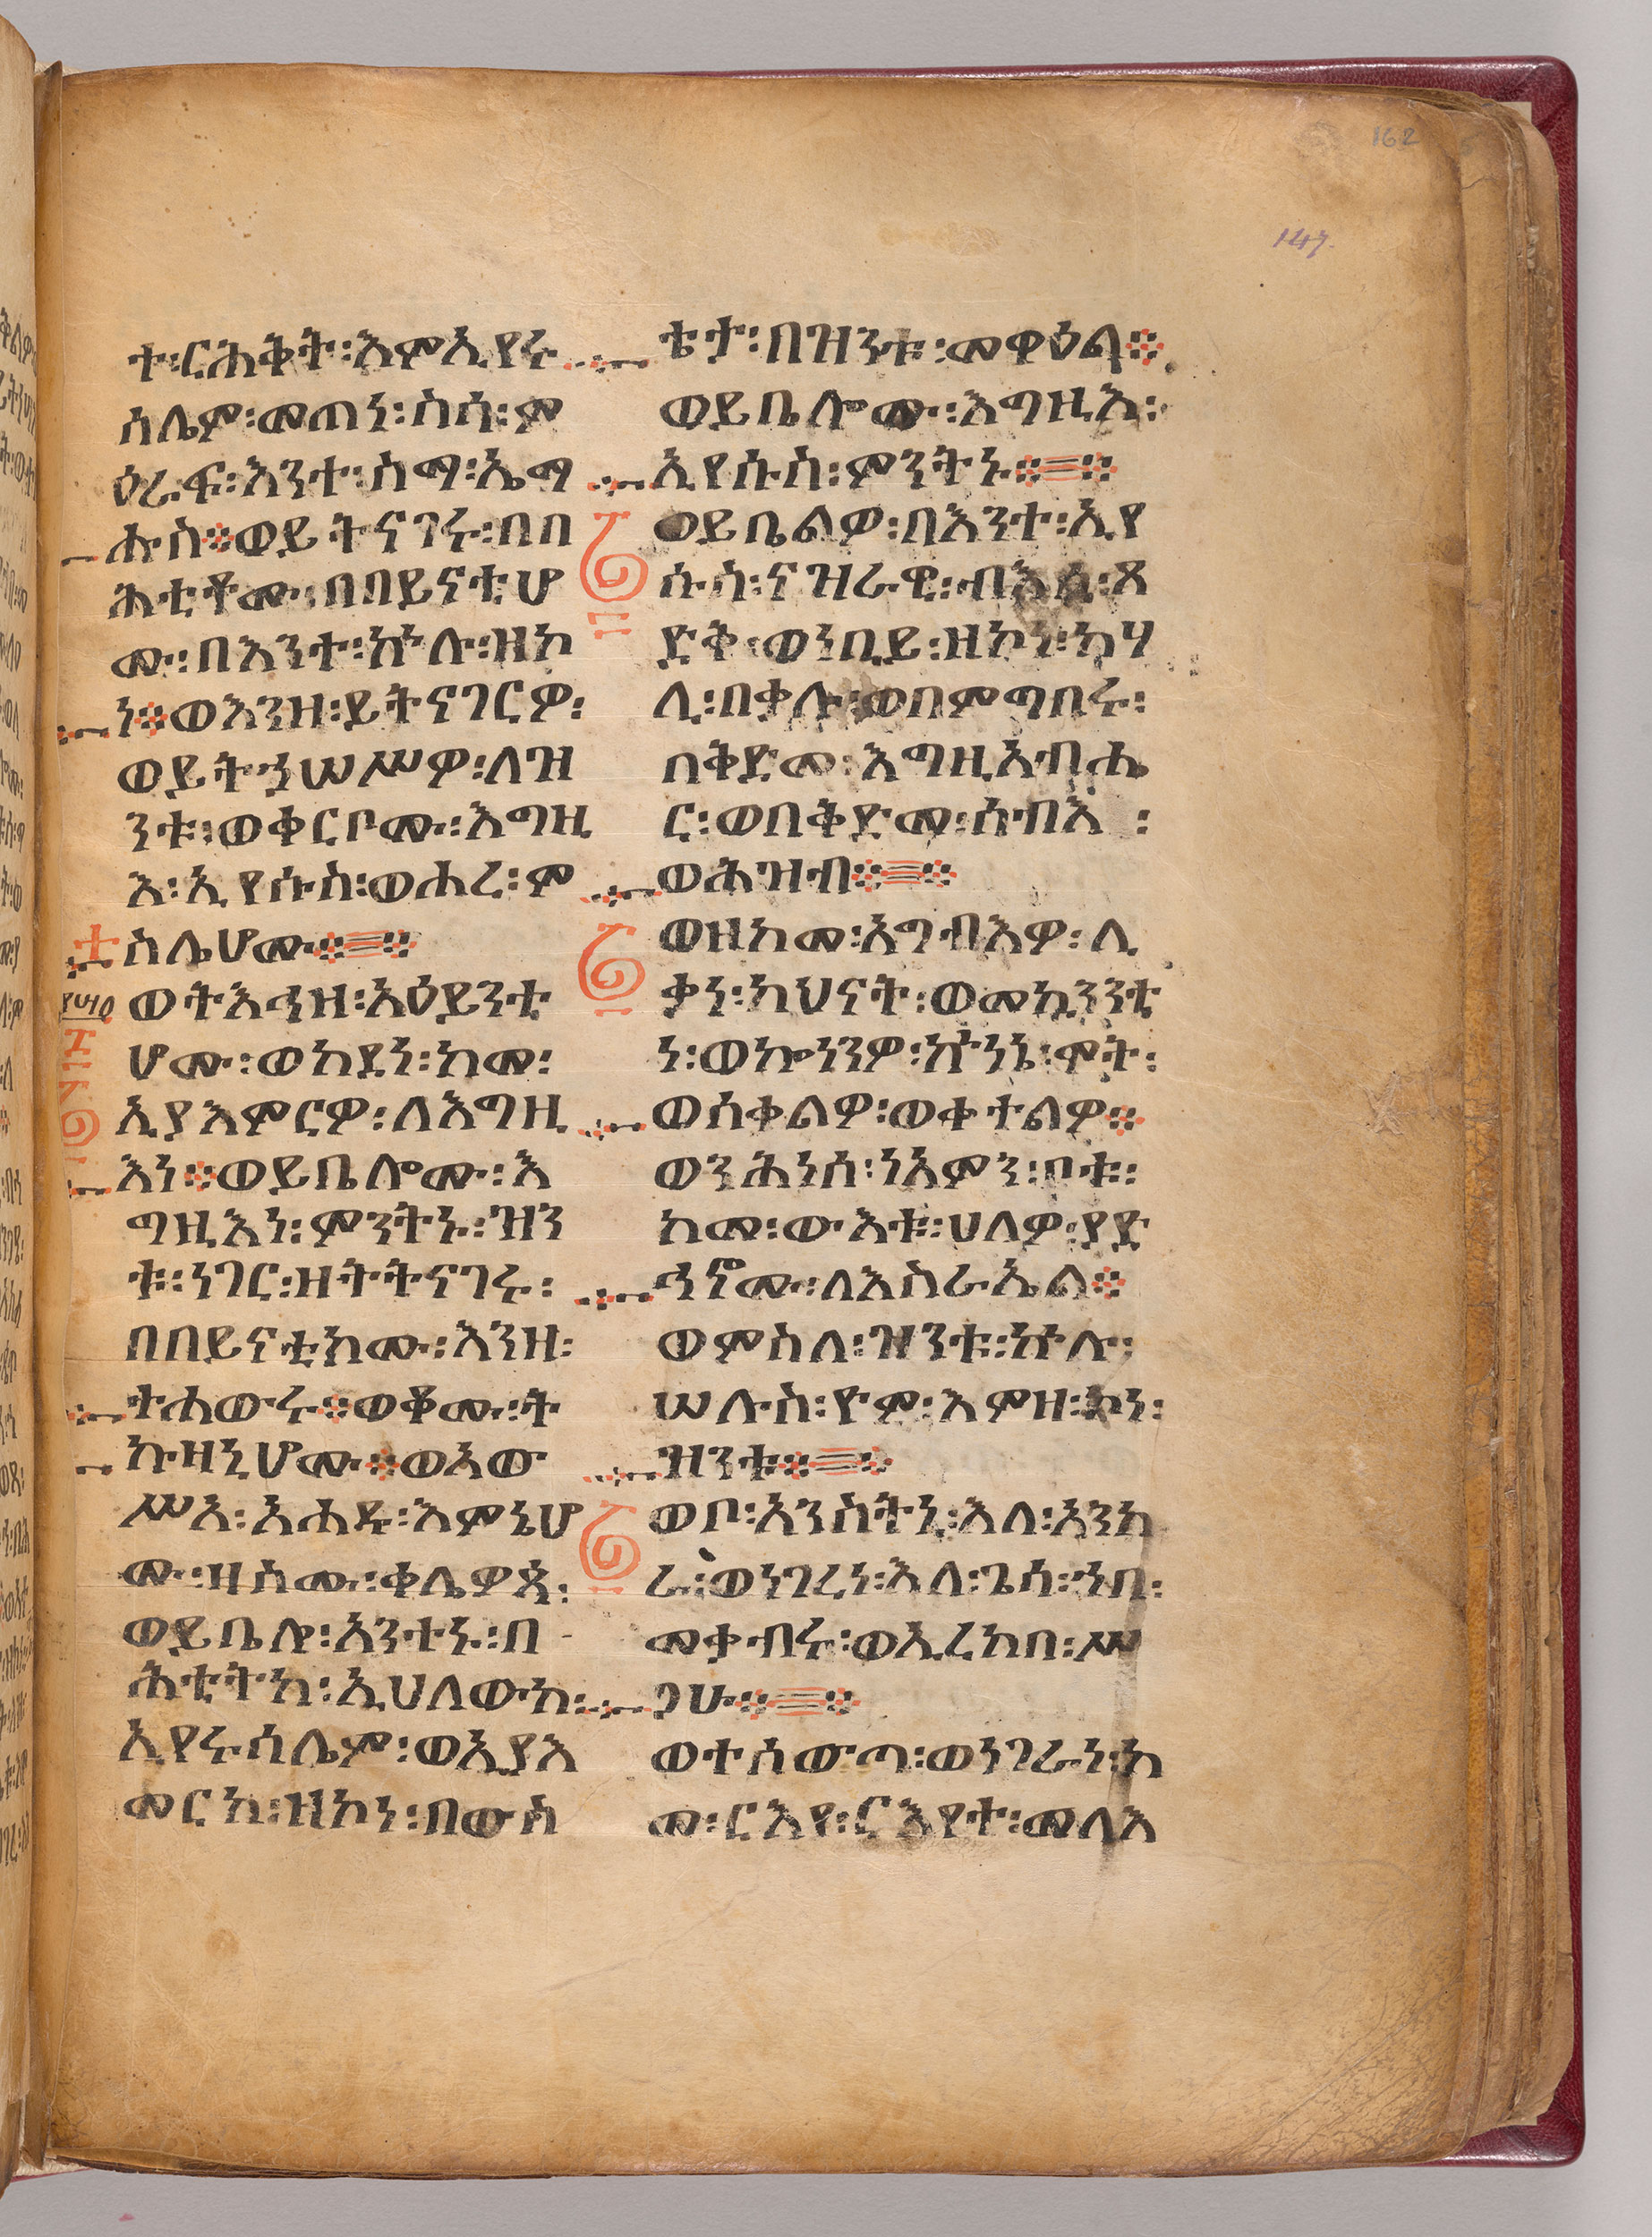 162
147.
ተ፡ርሕቅት፡እምኢየሩ
ሰሌም፡መጠነ፡ስሳ፡ም
ዕራፍ፡እንተ፡ስማ፡ኤማ
ሑስ፨ወይትናገሩ፡በበ
ሕቲቶሙ፡በበይናቲሆ
ሙ፡በእንተ፡ኵሉ፡ዝኮ
ነ፨ወእንዘ፡ይትናገርዎ፡
ወይትኃሠሥዎ፡ለዝ
ንቱ፡ወቀርቦሙ፡እግዚ
እ፡ኢየሱስ፡ወሐረ፡ም
ስሌሆሙ፨፨
ወትእኅዘ፡አዕይንቲ
ሆሙ፡ወከደነ፡ከመ፡
ኢያእምርዎ፡ለእግዚ
እነ፨ወይቤሎሙ፡እ
ግዚእነ፡ምንትኑ፡ዝን
ቱ፡ነገር፡ዘትትናገሩ፡
በበይናቲክሙ፡እንዘ፡
ተሐውሩ፨ወቆሙ፡ት
ኩዛኒሆሙ፨ወአው
ሥአ፡አሐዱ፡እምኔሆ
ሙ፡ዘስሙ፡ቀሌዎጳ፡
ወይቤሎ፡አንተኑ፡በ
ሕቲትከ፡ኢሀለውከ፡
ኢየሩሳሌም፡ወኢያእ
መርከ፡ዝኮነ፡በውስ
ቴታ፡በዝንቱ፡መዋዕል፨
ወይቤሎሙ፡እግዚእ፡
ኢየሱስ፡ምንትኑ፨፨
ወይቤልዎ፡በእንተ፡ኢየ
ሱስ፡ናዝራዊ፡ብእሲ፡ጻ
ድቅ፡ወነቢይ፡ዘኮነ፡ከሃ
ሊ፡በቃሉ፡ወበምግባሩ፡
በቅድመ፡እግዚአብሔ
ር፡ወበቅድመ፡ሰብእ፡
ወሕዝብ፨፨
ወዘከመ፡አግብእዎ፡ሊ
ቃነ፡ካህናት፡ወመኳንንቲ
ነ፡ወኰነንዎ፡ኵነኔ፡ሞት፡
ወሰቀልዎ፡ወቀተልዎ፨
ወንሕነሰ፡ነአምን፡ቦቱ፡
ከመ፡ውእቱ፡ሀለዎ፡ያድ
ኅኖሙ፡ለእስራኤል፨
ወምስለ፡ዝንቱ፡ኵሉ፡
ሠሉስ፡ዮም፡እምዘ፡ኮነ፡
ዝንቱ፨፨
ወቦ፡አንስትኒ፡እለ፡አንከ
ራ፡ወነገረነ፡እለ፡ጌሳ፡ኀበ፡
መቃብሩ፡ወኢረከበ፡ሥ
ጋሁ፨፨
ወተሰውጣ፡ወነገራነ፡ከ
መ፡ርእየ፡ርእየተ፡መላእ